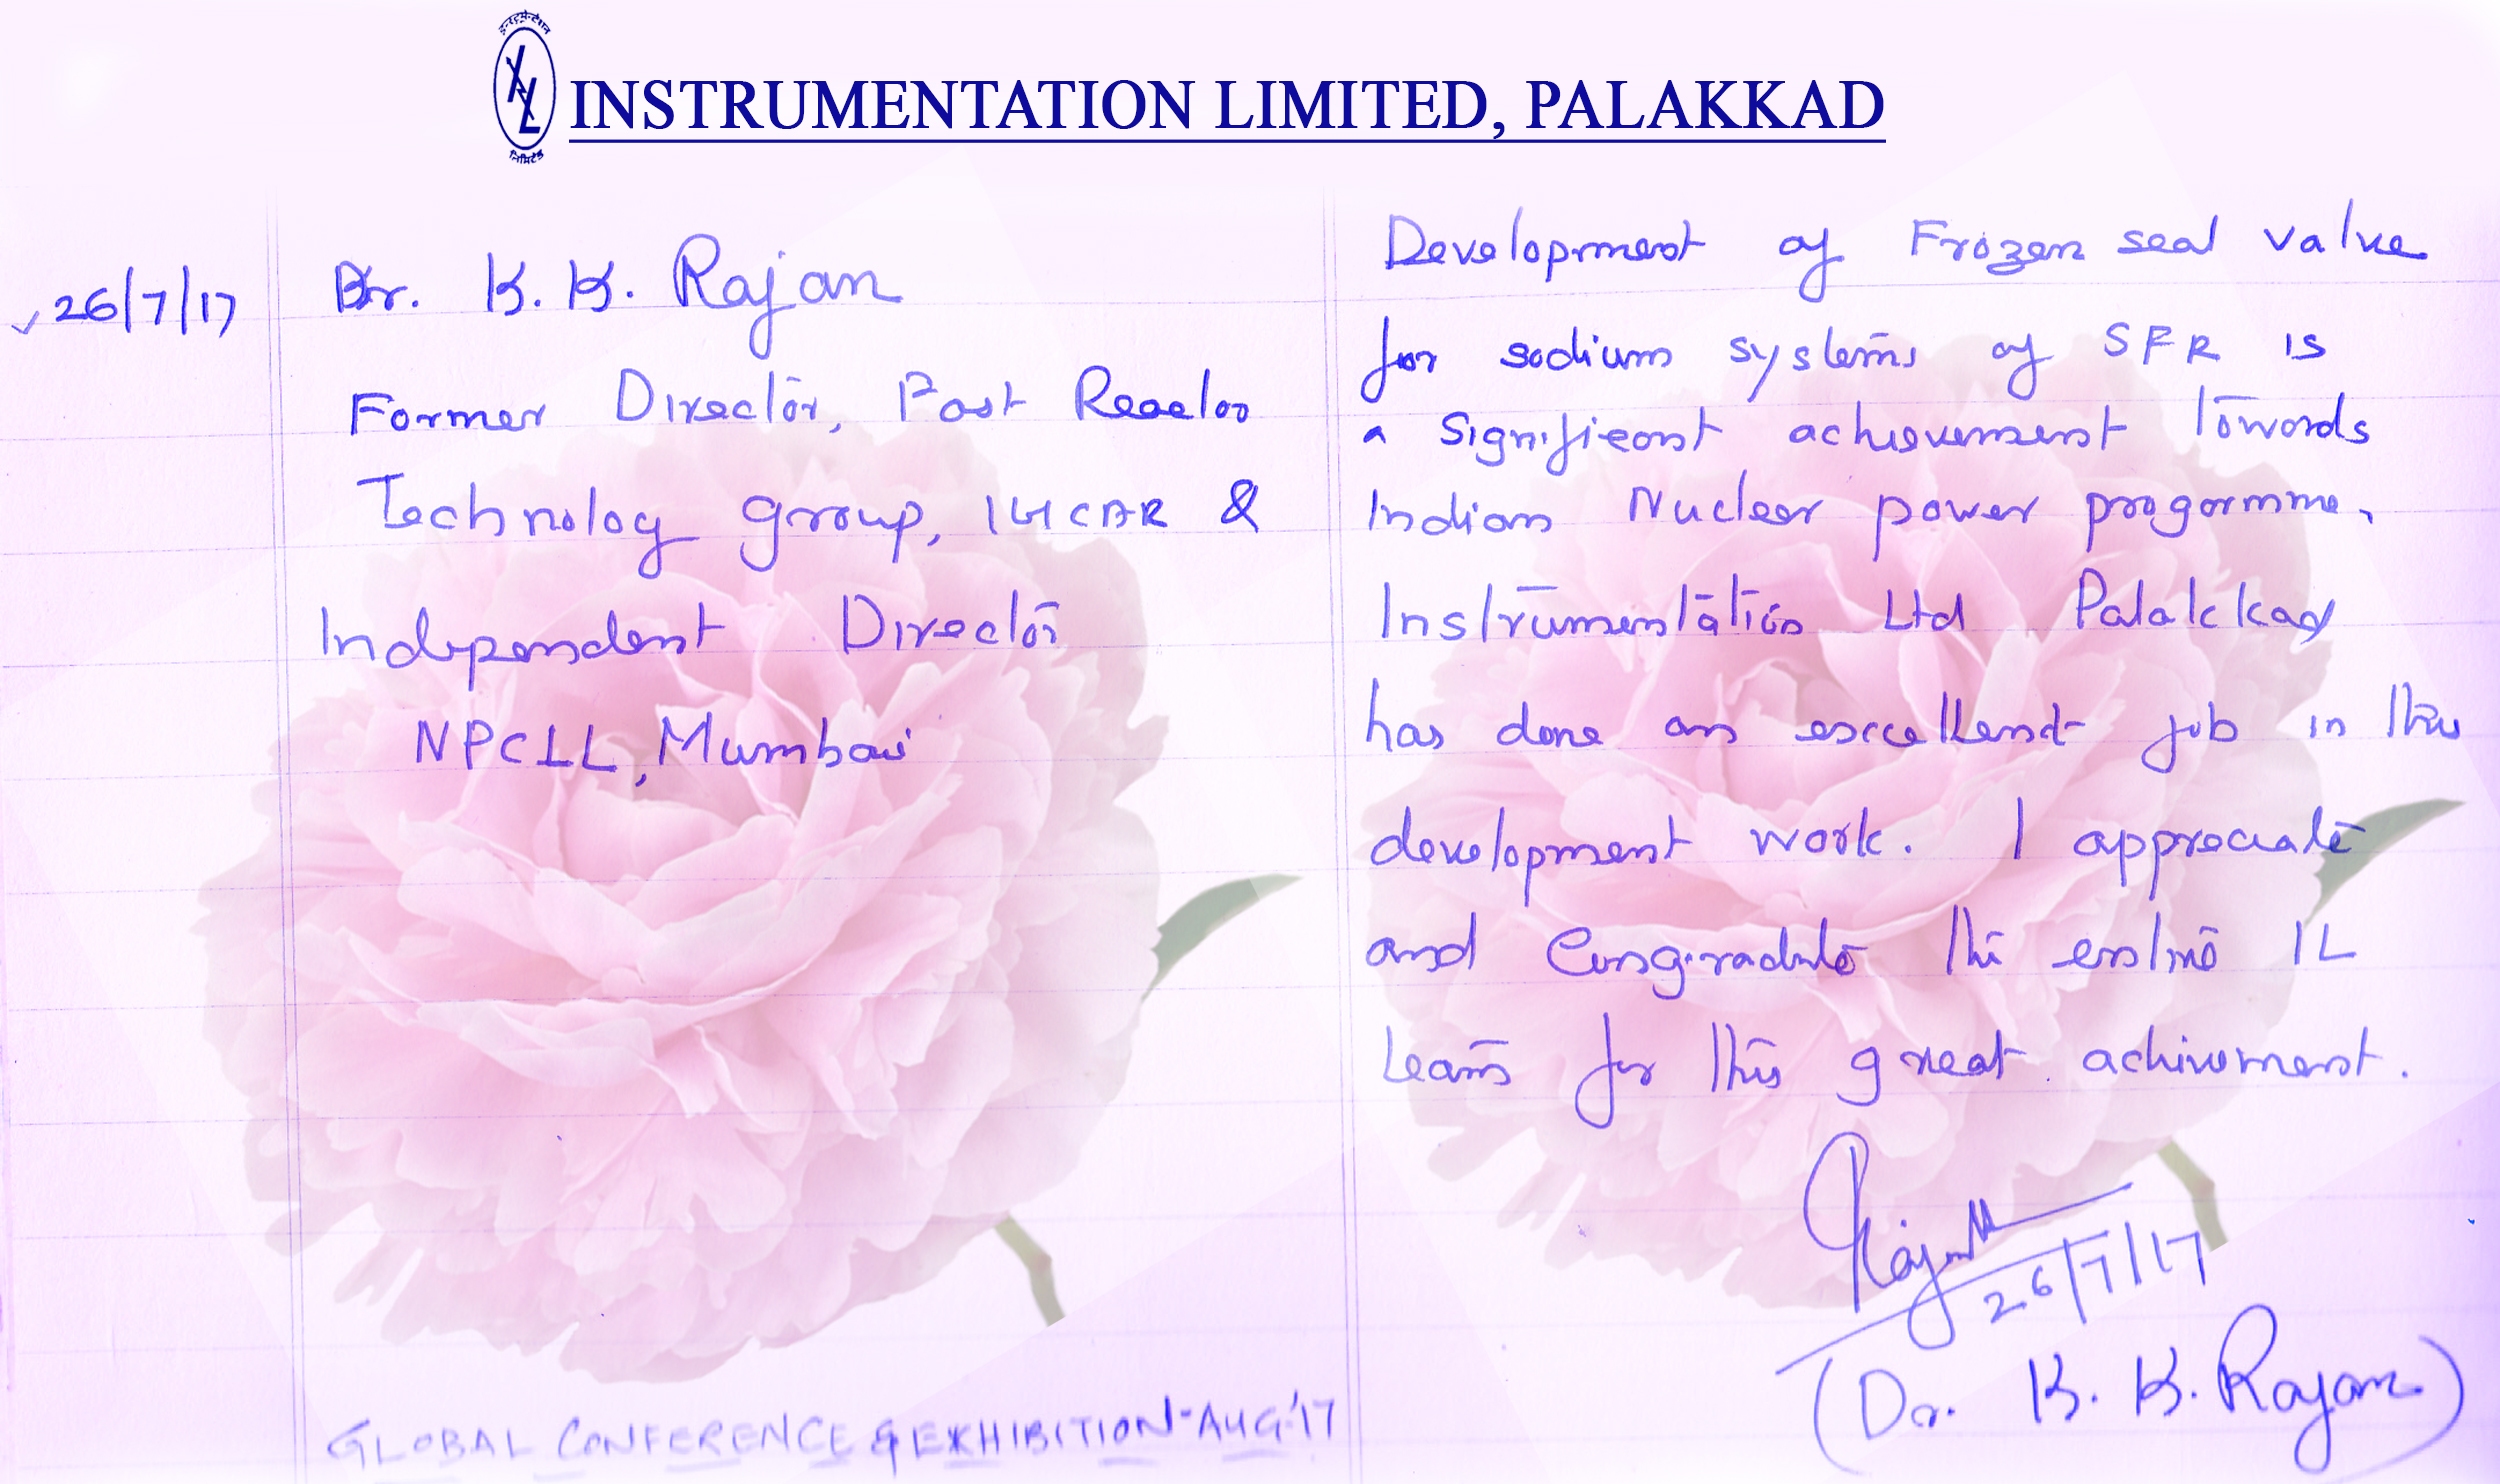 इन्स्ट्रूमेन्टेशन
IL
लिमिटेड
INSTRUMENTATION LIMITED, PALAKKAD
26/7/17
Dr. K. K. Rajan
Former Director, Fast Reactor
Technolog group, IGCAR &
Independent Director
NPCIL, Mumbai
Development of Frozen seal valve
for sodium systems of SFR is
a significant achievement towards
Indian Nuclear power progarmme.
Instrumentation Ltd Palakkad
has done an excellent job in this
development work. I appreciate
and Congradulte the entire IL
team for this great achivement.
26/7/17
(Dr. K. K. Rajan)
GLOBAL CONFERENCE & EXHIBITION - AUG'17